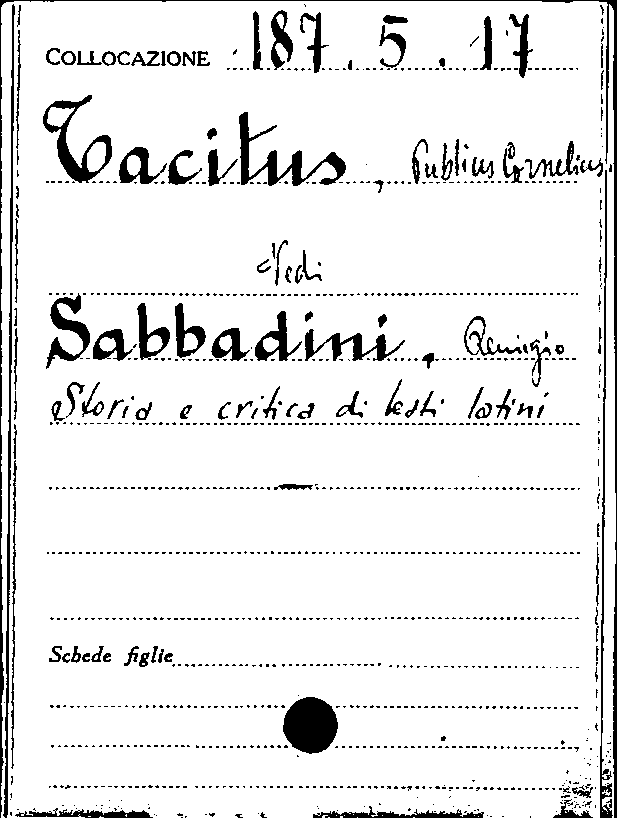 COLLOCAZIONE 187.5.17
Tacitus, Publius Cornelius.
Vedi
Sabbadini, Remigio
Storia e critica di testi latini
—
Schede figlie